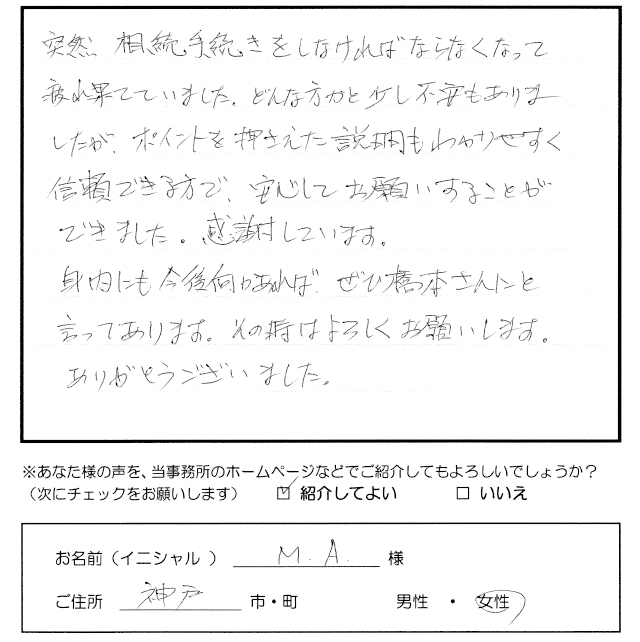 突然、相続手続きをしなければならなくなって
疲れ果てていました。どんな方かと少し不安もありま
したが、ポイントを押さえた説明もわかりやすく
信頼できる方で、安心してお願いすることが
できました。感謝しています。
身内にも今後何かあれば、ぜひ橋本さんにと
言ってあります。その時はよろしくお願いします。
ありがとうございました。
※あなた様の声を、当事務所のホームページなどでご紹介してもよろしいでしょうか？
（次にチェックをお願いします） ☑ 紹介してよい □ いいえ
お名前（イニシャル ） M.A. 様
ご住所 神戸 市・町 男性 ・ 女性